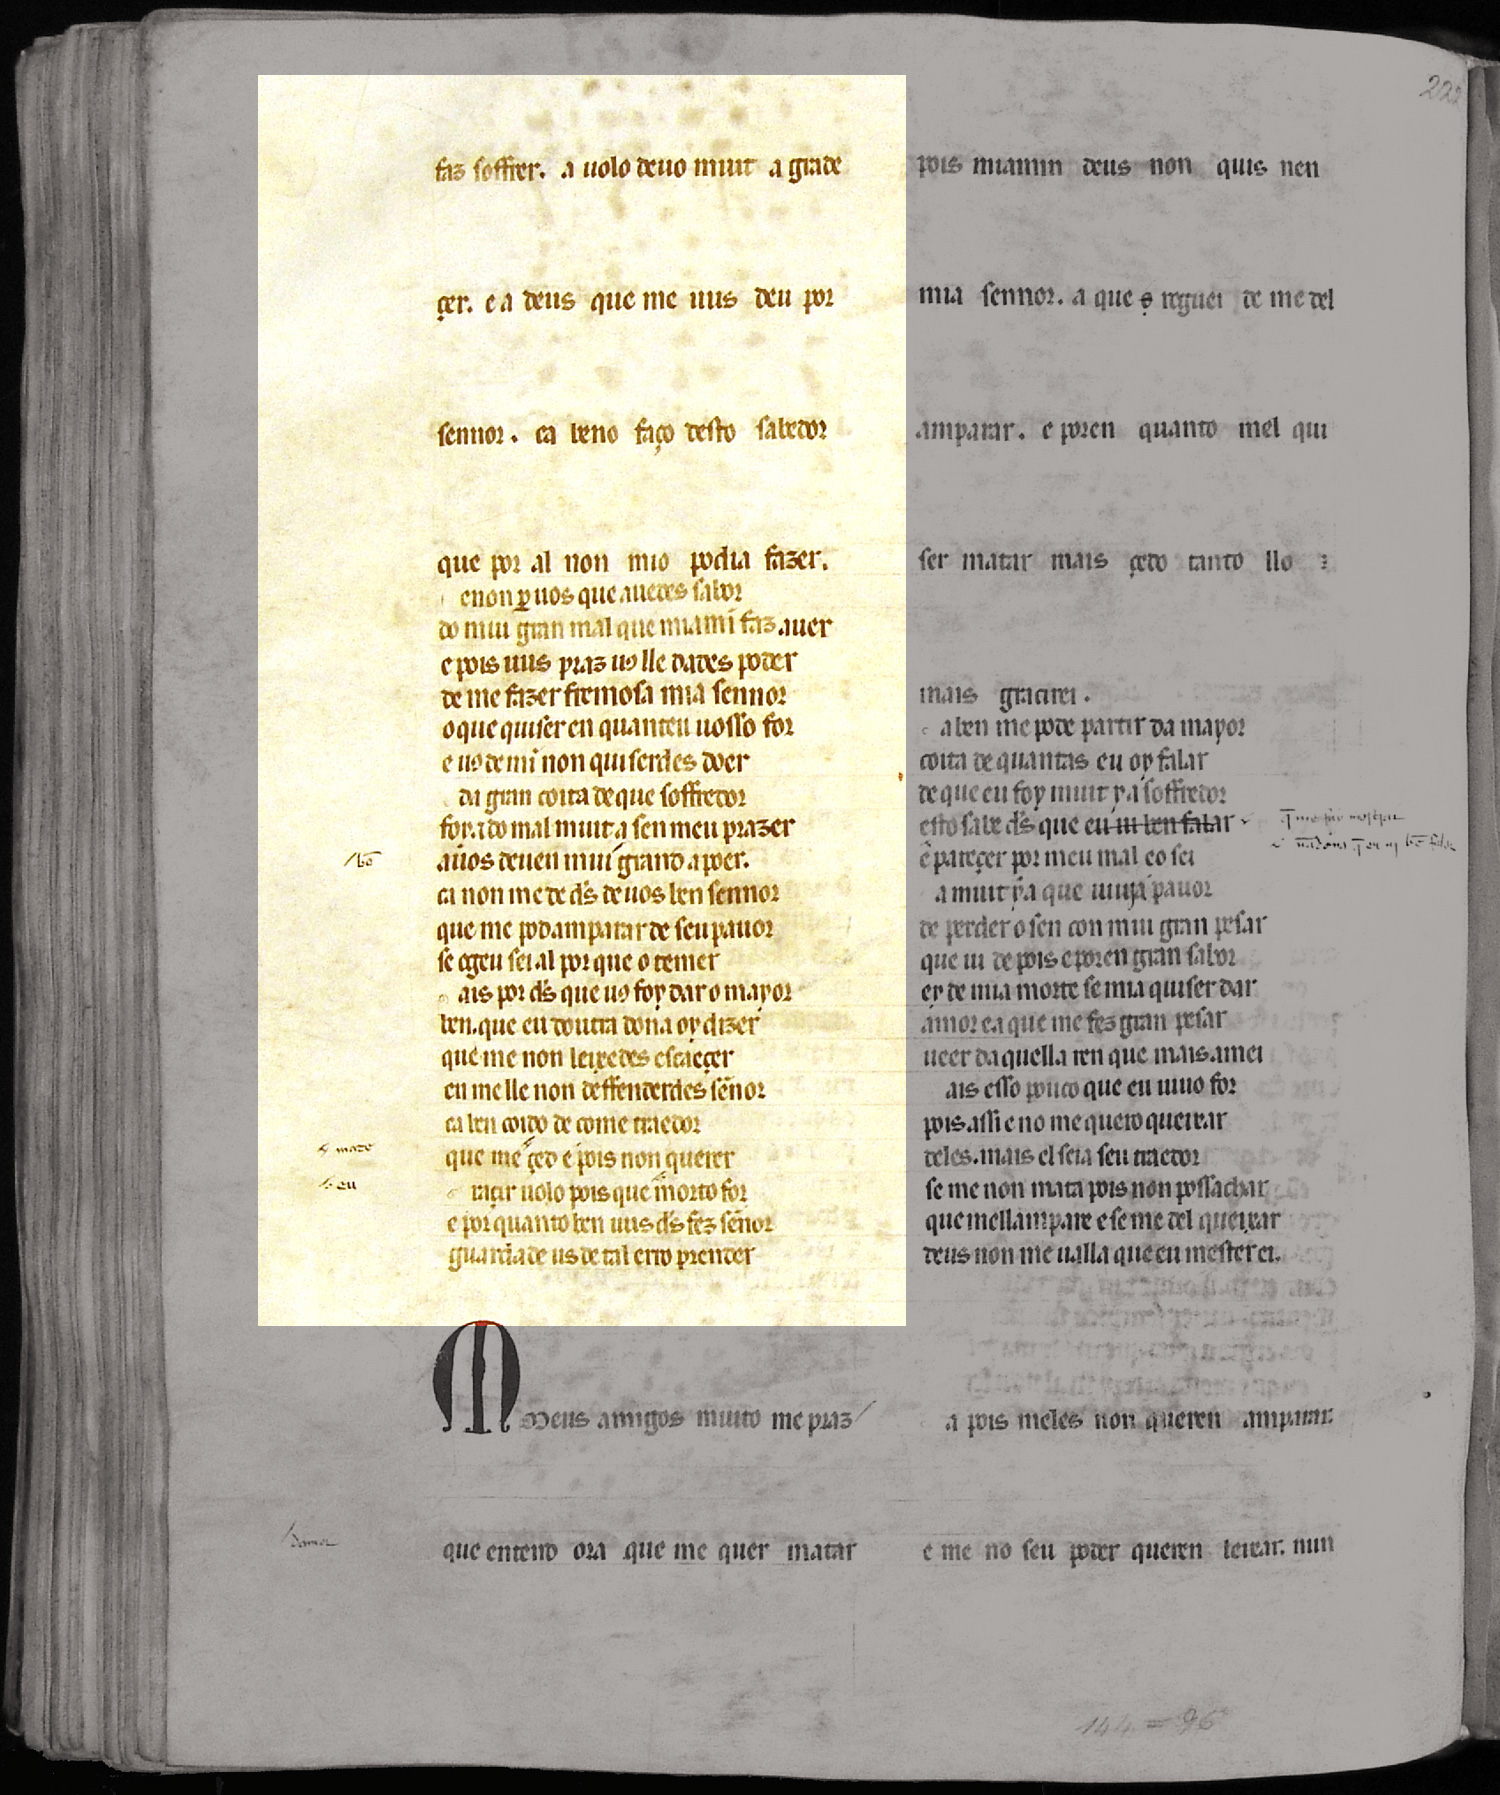 faz soffrer. a uolo deuo muit a grade
çer. e a deus que me uus deu por
sennor. ca beno faço desto sabedor
que por al non mio podia fazer.
enon ꝑ uos que auedes sabor
do mui gran mal que miamĩ faz auer
e pois uus praz uꝯ lle dades poder
de me fazer fremosa mia sennor
o que quiser en quanteu uosso for
e uꝯ de mĩ non quiserdes doer
da gran coita de que soffredor
fora do mal muit a sen meu prazer
a uos deuen mui grand a poer.
/bẽ
ca non me de ds̃ de uos ben sennor
que me pod amparar de seu pauor
se ogeu sei al por que o temer
ais por ds̃ que uꝯ foy dar o mayor
ben. que eu doutra dona oy dizer
que me non leixedes escaeçer
en me lle non deffenderdes sẽnor
ca ben coido de come traedor
que me çed e pois non querer
raçir uolo pois que morto for
e por quanto ben uus ds̃ fez sẽnor
guardade us de tal erro prender
Meus amigos muito me praz
que entend ora que me quer matar
pois miamin deus non quis nen
mia sennor. a que roguei de me del
amparar. e poren quanto mel qui
ser matar mais çedo tanto llo
mais gracirei.
a ben me pode partir da mayor
coita de quantas eu oy falar
de que eu foy muit y a soffredor
esto sabe ds̃ que eu ui ben falar
e pareçer por meu mal eo sei
a muit y a que uiuya pauor
de perder o sen con mui gran pesar
que ui de pois e poren gran sabor
ey de mia morte se mia quiser dar
amor ea que me fez gran pesar
ueer daquella ren que mais amei
ais esso pouco que eu uiuo for
pois assi e no me quero queixar
deles. mais el seia seu traedor
se me non mata pois non poss achar
que mell ampare e se me del queixar
deus non me ualla que eu mester ei.
a pois meles non queren amparar
e me no seu poder queren leixar. nun
144 = 96